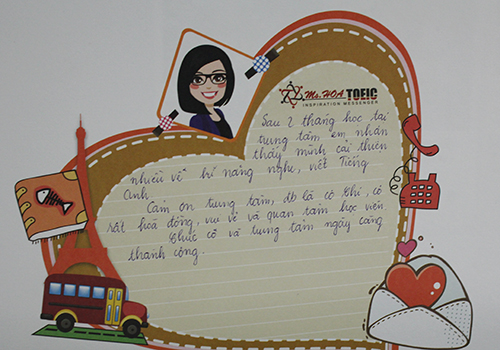 Ms. HOA TOEIC
INSPIRATION MESSENGER
Sau 2 tháng học tại
trung tâm em nhận
thấy mình cải thiện
nhiều về kĩ năng nghe, viết Tiếng
Anh
Cảm ơn trung tâm, đb là cô Thi, cô
rất hoà đồng, vui vẻ và quan tâm học viên
Chúc cô và trung tâm ngày càng
thành công.